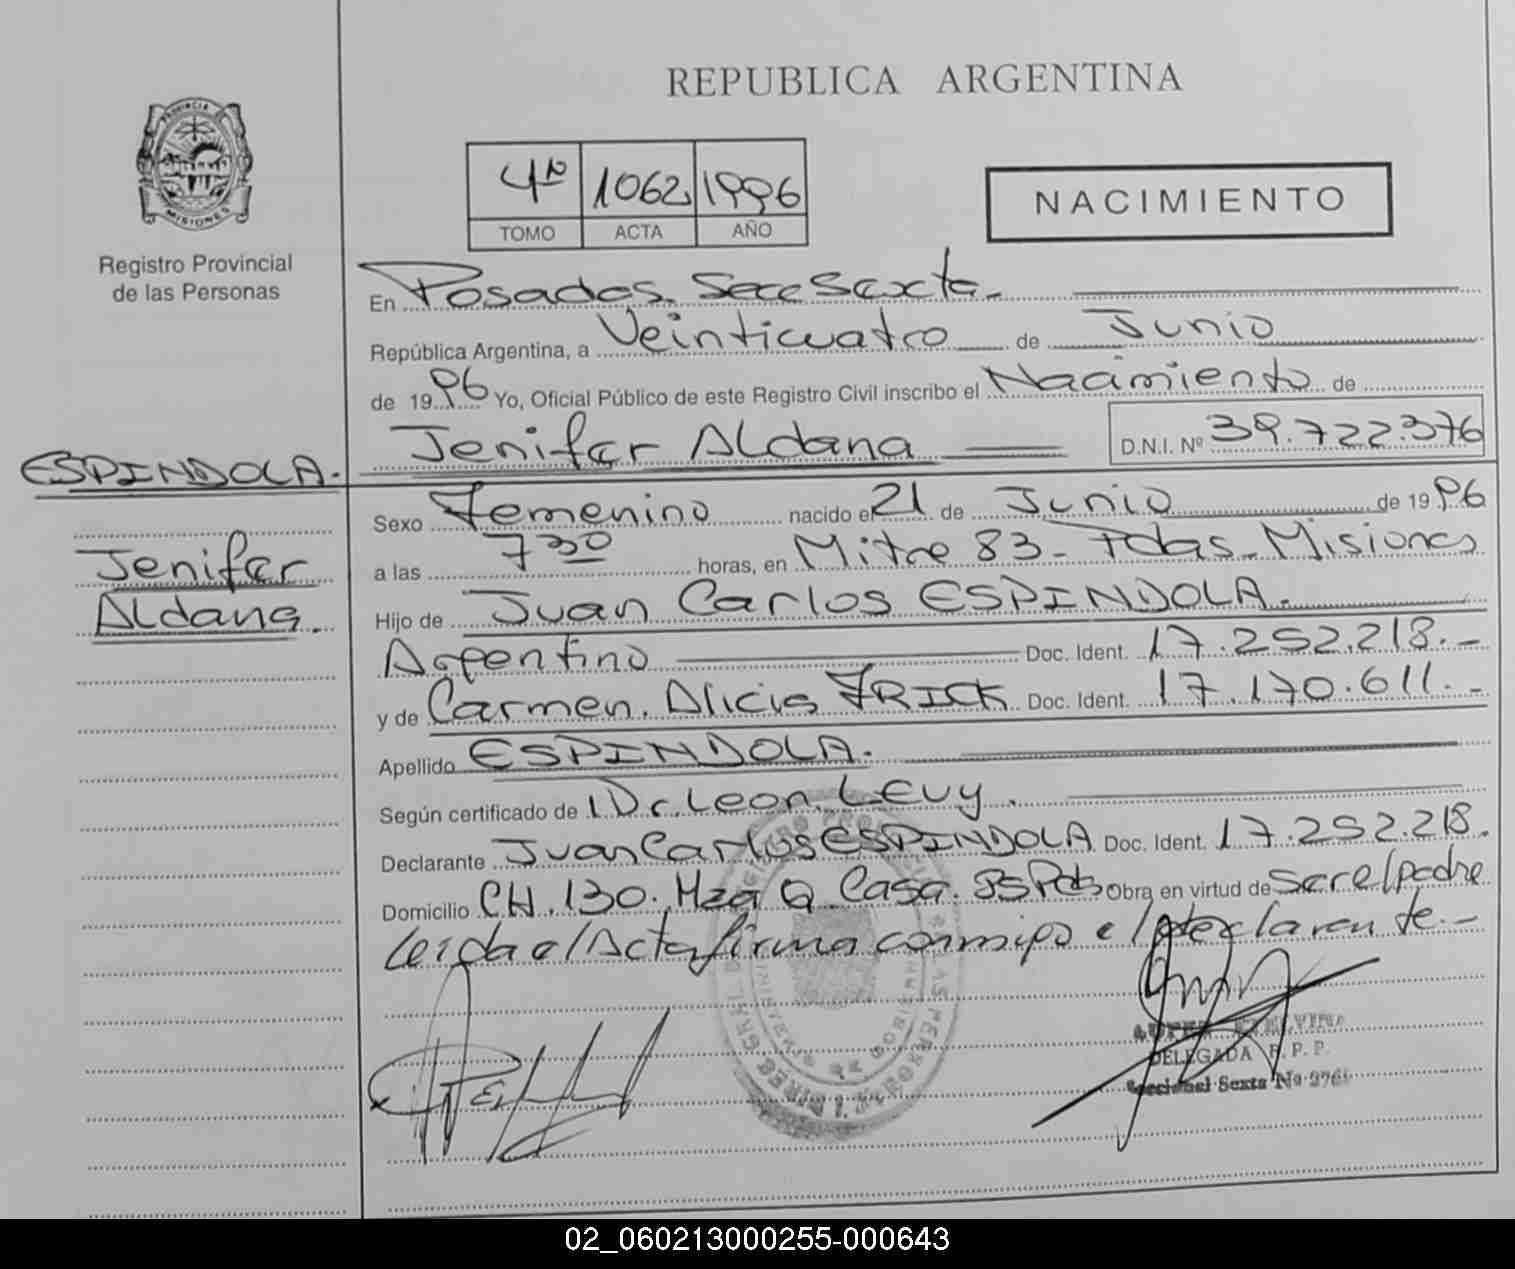 REPUBLICA ARGENTINA
PROVINCIA DE
MISIONES
Registro Provincial
de las Personas
4º 1062 1996
TOMO ACTA AÑO
NACIMIENTO
En Posadas. Secc Sexta.
República Argentina, a Veinticuatro de Junio
de 1996 Yo, Oficial Público de este Registro Civil inscribo el Nacimiento de
Jenifer Aldana D.N.I. Nº 39.722.376
ESPINDOLA.
Jenifer
Aldana.
Sexo Femenino nacido el 21 de Junio de 1996
a las 7 30 horas, en Mitre 83 - Pdas - Misiones
Hijo de Juan Carlos ESPINDOLA.
Argentino Doc. Ident. 17.252.218.-
y de Carmen. Alicia FRICK Doc. Ident. 17.170.611.-
Apellido ESPINDOLA.
Según certificado de Dr. Leon. Levy.
Declarante Juan Carlos ESPINDOLA Doc. Ident. 17.252.218.
Domicilio CH. 130. Mza Q Casa. Pds Obra en virtud de Ser el padre
Leida el Acta firma conmigo el declarante.-
DELEGADA R. P. P.
Seccional Sexta Nº
02_060213000255-000643